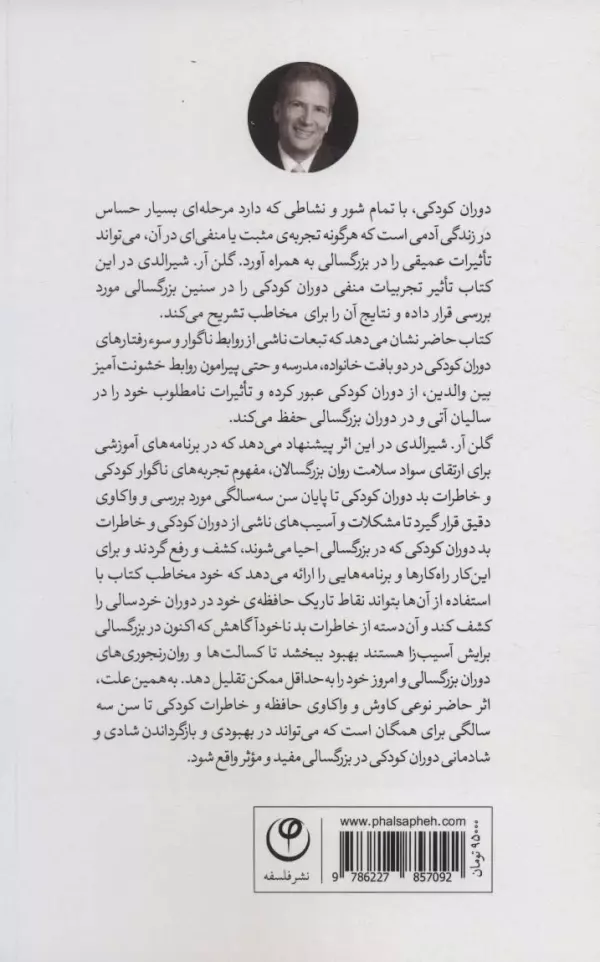 دوران کودکی، با تمام شور و نشاطی که دارد مرحله‌ای بسیار حساس
در زندگی آدمی است که هرگونه تجربه‌ی مثبت یا منفی‌ای در آن، می‌تواند
تأثیرات عمیقی را در بزرگسالی به همراه آورد. گلن آر. شیرالدی در این
کتاب تأثیر تجربیات منفی دوران کودکی را در سنین بزرگسالی مورد
بررسی قرار داده و نتایج آن را برای مخاطب تشریح می‌کند.
کتاب حاضر نشان می‌دهد که تبعات ناشی از روابط ناگوار و سوء رفتارهای
دوران کودکی در دو بافت خانواده، مدرسه و حتی پیرامون روابط خشونت آمیز
بین والدین، از دوران کودکی عبور کرده و تأثیرات نامطلوب خود را در
سالیان آتی و در دوران بزرگسالی حفظ می‌کند.
گلن آر. شیرالدی در این اثر پیشنهاد می‌دهد که در برنامه‌های آموزشی
برای ارتقای سواد سلامت روان بزرگسالان، مفهوم تجربه‌های ناگوار کودکی
و خاطرات بد دوران کودکی تا پایان سن سه‌سالگی مورد بررسی و واکاوی
دقیق قرار گیرد تا مشکلات و آسیب‌های ناشی از دوران کودکی و خاطرات
بد دوران کودکی که در بزرگسالی احیا می‌شوند، کشف و رفع گردند و برای
این‌کار راه‌کارها و برنامه‌هایی را ارائه می‌دهد که خود مخاطب کتاب با
استفاده از آن‌ها بتواند نقاط تاریک حافظه‌ی خود در دوران خردسالی را
کشف کند و آن‌دسته از خاطرات بد ناخودآگاهش که اکنون در بزرگسالی
برایش آسیب‌زا هستند بهبود ببخشد تا کسالت‌ها و روان‌رنجوری‌های
دوران بزرگسالی و امروز خود را به‌حداقل ممکن تقلیل دهد. به‌همین‌علت،
اثر حاضر نوعی کاوش و واکاوی حافظه و خاطرات کودکی تا سن سه
سالگی برای همگان است که می‌تواند در بهبودی و بازگرداندن شادی و
شادمانی دوران کودکی در بزرگسالی مفید و مؤثر واقع شود.
www.phalsapheh.com
9 786227 857092
نشر فلسفه
۹۵۰۰۰ تومان